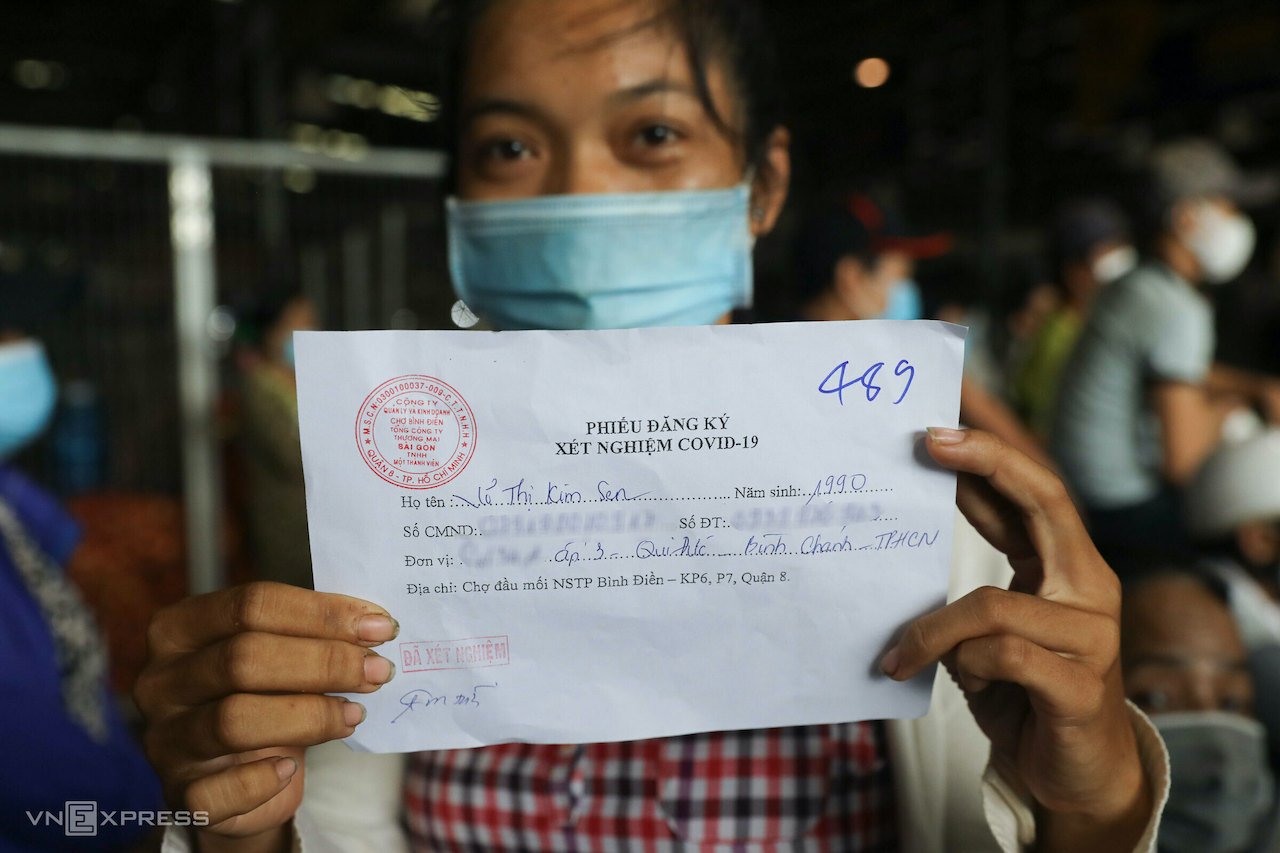 489
M.S.C.N:0300100037-009-C.T.T.N.H.H
CÔNG TY
QUẢN LÝ VÀ KINH DOANH
CHỢ BÌNH ĐIỀN
TỔNG CÔNG TY
THƯƠNG MẠI
SÀI GÒN
TNHH
MỘT THÀNH VIÊN
QUẬN 8 - TP. HỒ CHÍ MINH
PHIẾU ĐĂNG KÝ
XÉT NGHIỆM COVID-19
Họ tên : Thị Kim Sen Năm sinh: 1990
Số CMND: Số ĐT:
Đơn vị: ấp 3 - Qui Đức - Bình Chánh - TPHCM
Địa chỉ: Chợ đầu mối NSTP Bình Điền – KP6, P7, Quận 8.
ĐÃ XÉT NGHIỆM
VNEXPRESS